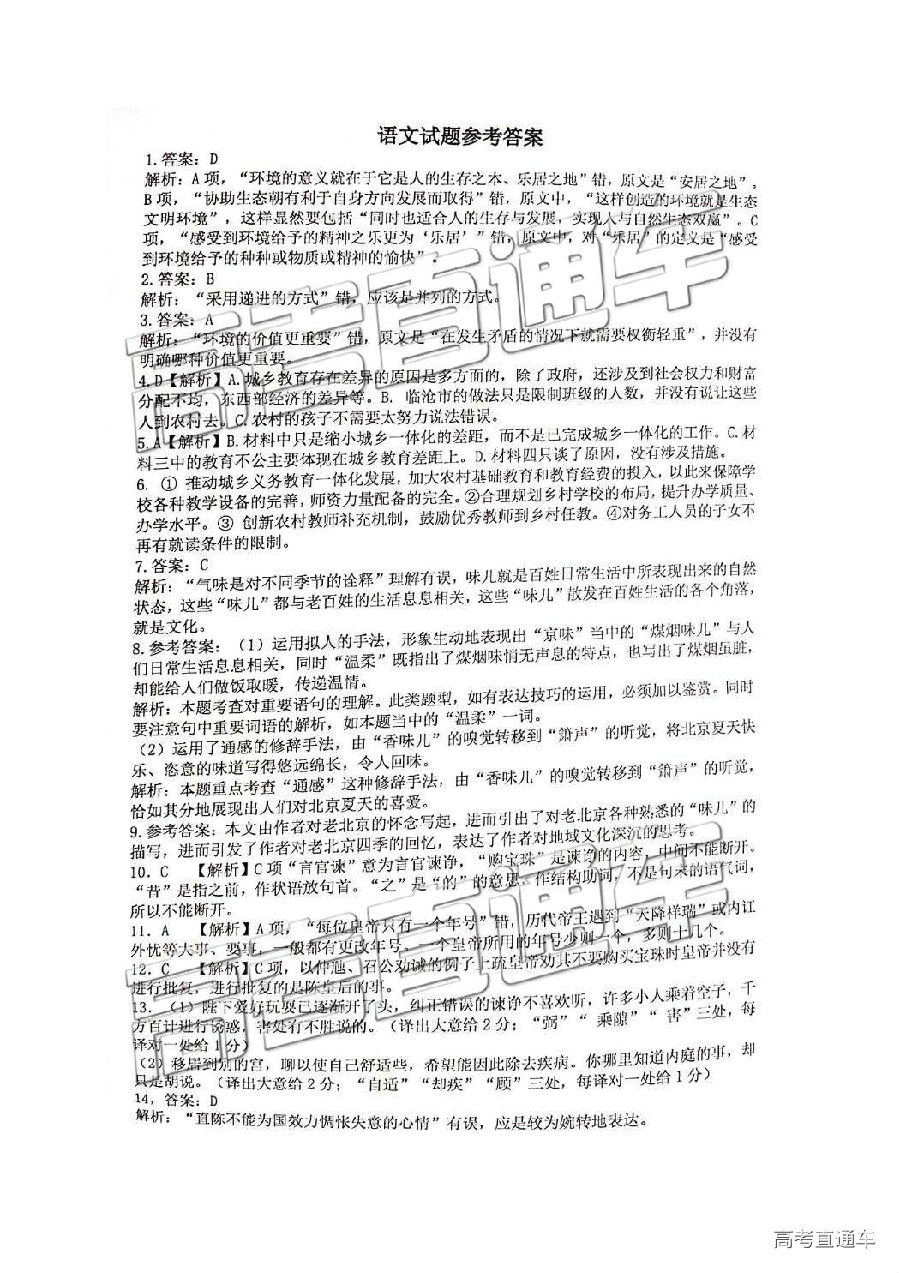 语文试题参考答案
1.答案：D
解析：A项，“环境的意义就在于它是人的生存之本、乐居之地”错，原文是“安居之地”。
B项，“协助生态朝有利于自身方向发展而取得”错，原文中，“这样创造的环境就是生态
文明环境”，这样显然要包括“同时也适合人的生存与发展，实现人与自然生态双赢”。C
项，“感受到环境给予的精神之乐更为‘乐居’”错，原文中，对“乐居”的定义是“感受
到环境给予的种种或物质或精神的愉快”。
2.答案：B
解析：“采用递进的方式”错，应该是并列的方式。
3.答案：A
解析：“环境的价值更重要”错，原文是“在发生矛盾的情况下就需要权衡轻重”，并没有
明确哪种价值更重要。
4.D【解析】A.城乡教育存在差异的原因是多方面的，除了政府，还涉及到社会权力和财富
分配不均，东西部经济的差异等。B.临沧市的做法只是限制班级的人数，并没有说让这些
人到农村去。C.农村的孩子不需要太努力说法错误。
5.A【解析】B.材料中只是缩小城乡一体化的差距，而不是已完成城乡一体化的工作。C.材
料三中的教育不公主要体现在城乡教育差距上。D.材料四只谈了原因，没有涉及措施。
6.①推动城乡义务教育一体化发展，加大农村基础教育和教育经费的投入，以此来保障学
校各种教学设备的完善，师资力量配备的完全。②合理规划乡村学校的布局，提升办学质量、
办学水平。③ 创新农村教师补充机制，鼓励优秀教师到乡村任教。④对务工人员的子女不
再有就读条件的限制。
7.答案：C
解析：“气味是对不同季节的诠释”理解有误，味儿就是百姓日常生活中所表现出来的自然
状态，这些“味儿”都与老百姓的生活息息相关，这些“味儿”散发在百姓生活的各个角落，
就是文化。
8.参考答案：（1）运用拟人的手法，形象生动地表现出“京味”当中的“煤烟味儿”与人
们日常生活息息相关，同时“温柔”既指出了煤烟味悄无声息的特点，也写出了煤烟虽脏，
却能给人们做饭取暖，传递温情。
解析：本题考查对重要语句的理解。此类题型，如有表达技巧的运用，必须加以鉴赏。同时
要注意句中重要词语的解析，如本题当中的“温柔”一词。
（2）运用了通感的修辞手法，由“香味儿”的嗅觉转移到“箫声”的听觉，将北京夏天快
乐、恣意的味道写得悠远绵长，令人回味。
解析：本题重点考查“通感”这种修辞手法，由“香味儿”的嗅觉转移到“箫声”的听觉，
恰如其分地展现出人们对北京夏天的喜爱。
9.参考答案：本文由作者对老北京的怀念写起，进而引出了对老北京各种熟悉的“味儿”的
描写，进而引发了作者对老北京四季的回忆，表达了作者对地域文化深沉的思考。
10.C 【解析】C项“言官谏”意为言官谏诤，“购宝珠”是谏诤的内容，中间不能断开。
“昔”是指之前，作状语放句首。“之”是“的”的意思，作结构助词，不是句末的语气词，
所以不能断开。
11.A 【解析】A项，“每位皇帝只有一个年号”错，历代帝王遇到“天降祥瑞”或内讧
外忧等大事、要事，一般都有更改年号。一个皇帝所用的年号少则一个，多则十几个。
12.C 【解析】C项，以仲池、石公劝诫的例子上疏皇帝劝其不要购买宝珠时皇帝并没有
进行批复，进行批复的是陈皇后的事。
13.（1）陛下爱好玩耍已逐渐开了头，纠正错误的谏诤不喜欢听，许多小人乘着空子，千
方百计进行诱惑，害处有不胜说的。（译出大意给2分；“弼”“ 乘隙”“ 害”三处，每
译对一处给1分）
（2）移居到别的宫，聊以使自己舒适些，希望能因此除去疾病。你哪里知道内庭的事，却
只是胡说。（译出大意给2分；“自适”“却疾”“顾”三处，每译对一处给1分）
14，答案：D
解析：“直陈不能为国效力惆怅失意的心情”有误，应是较为婉转地表达。
高考直通车
高考直通车
高考直通车